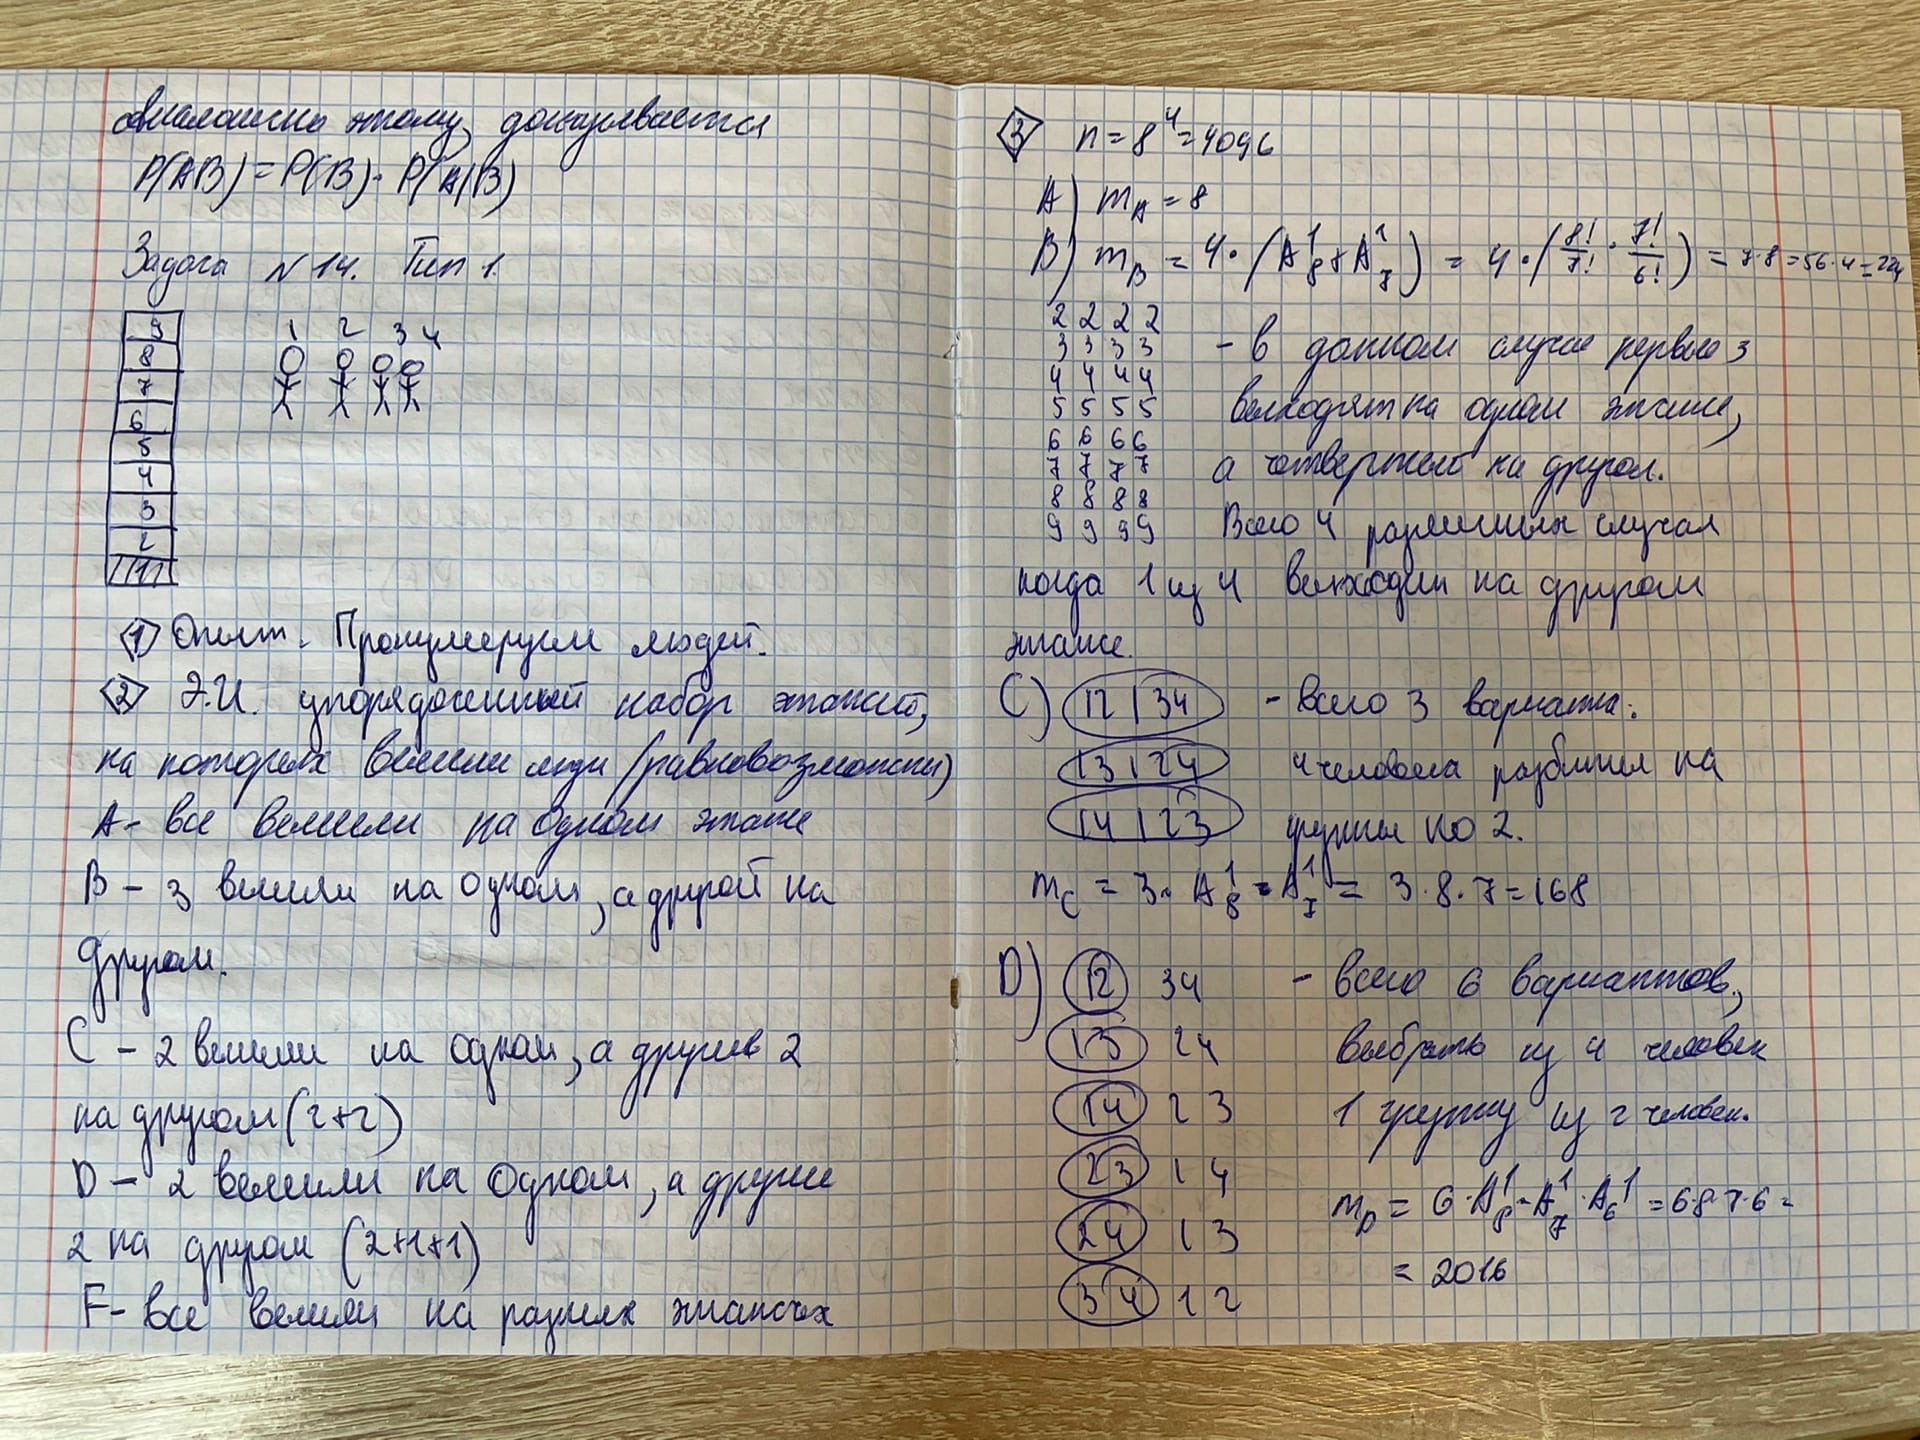 аналогично этому, доказывается
P(AB) = P(B) · P(A|B)
Задача N14. Тип 1.
9
8
7
6
5
4
3
2
1
1 2 3 4
1 Опыт. Пронумеруем людей.
2 Э.И. упорядоченный набор этажей,
на которых вышли люди (равновозможны)
A - все вышли на одном этаже
B - 3 вышли на одном, а другой на
другом.
C - 2 вышли на одном, а другие 2
на другом (2+2)
D - 2 вышли на одном, а другие
2 на другом (2+1+1)
F - все вышли на разных этажах
3 n = 8⁴ = 4096
A) m_A = 8
B) m_B = 4 · (A₈¹ + A₇¹) = 4 · (8!/7! · 7!/6!) = 7·8 = 56·4 = 224
2 2 2 2
3 3 3 3 - в данном случае первые 3
4 4 4 4
5 5 5 5 выходят на одном этаже,
6 6 6 6
7 7 7 7 а четвертый на другом.
8 8 8 8
9 9 9 9 Всего 4 различных случая
когда 1 из 4 выходит на другом
этаже.
C) 12 | 34 - всего 3 варианта:
13 | 24 4 человека разбились на
14 | 23 группы по 2.
m_C = 3 · A₈¹ · A₇¹ = 3·8·7 = 168
D) 12 34 - всего 6 вариантов,
13 24 выбрать из 4 человек
14 2 3 1 группу из 2 человек.
23 1 4
m_D = 6·A₈¹·A₇¹·A₆¹ = 6·8·7·6 =
24 1 3
= 2016
34 1 2